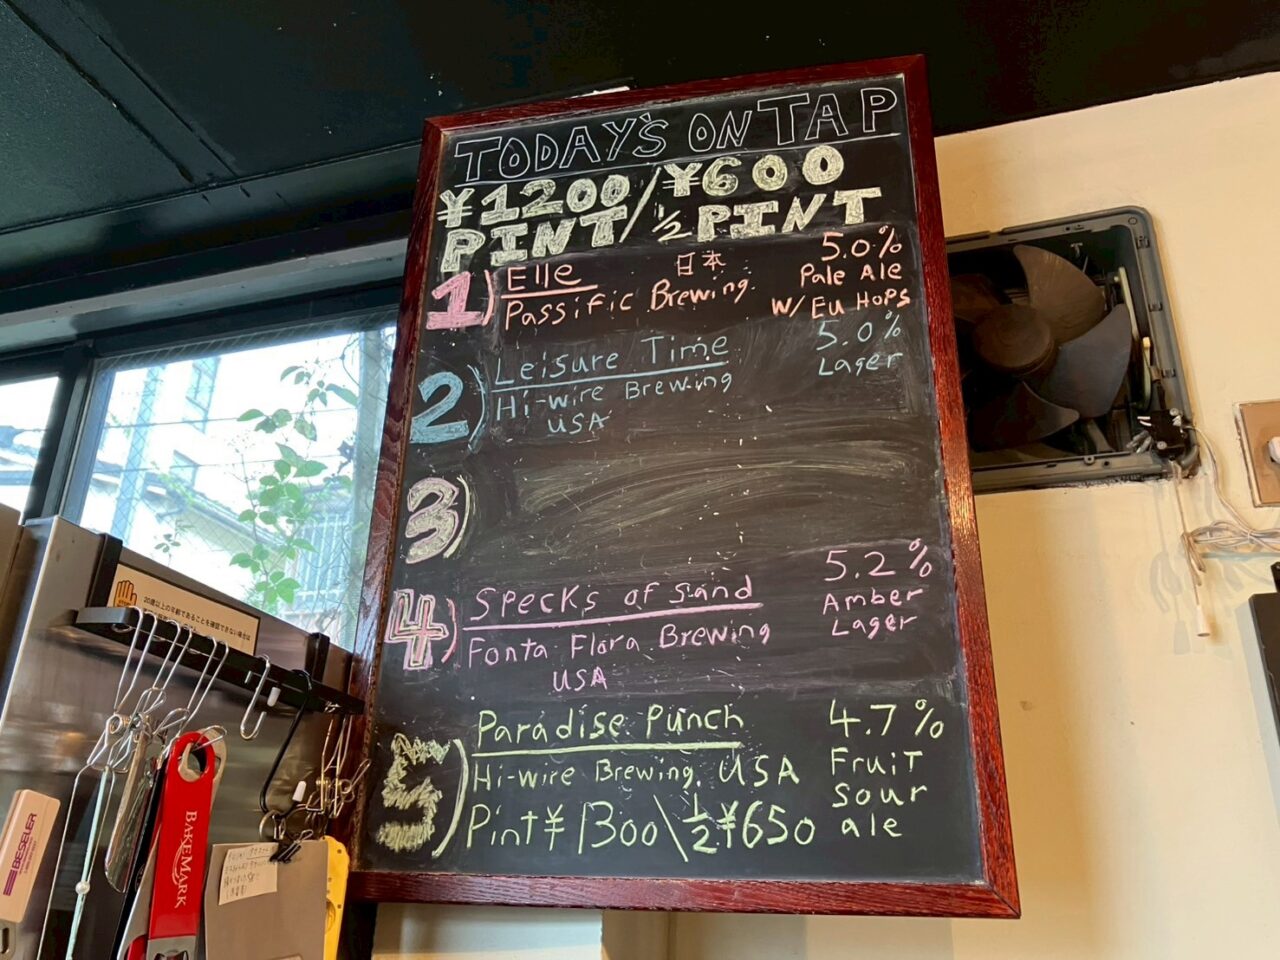 TODAY'S ON TAP
¥1200/¥600
PINT/½ PINT
1) Elle 日本 5.0%
Passific Brewing. Pale Ale
W/ Eu HOPS
2) Leisure Time 5.0%
Hi-wire Brewing Lager
USA
3)
4) Specks of Sand 5.2%
Fonta Flora Brewing Amber
USA Lager
5) Paradise Punch 4.7%
Hi-wire Brewing, USA Fruit
Pint ¥1300\½ ¥650 Sour
ale
20歳以上の年齢であることを確認できない場合は
BESELER
BAKEMARK